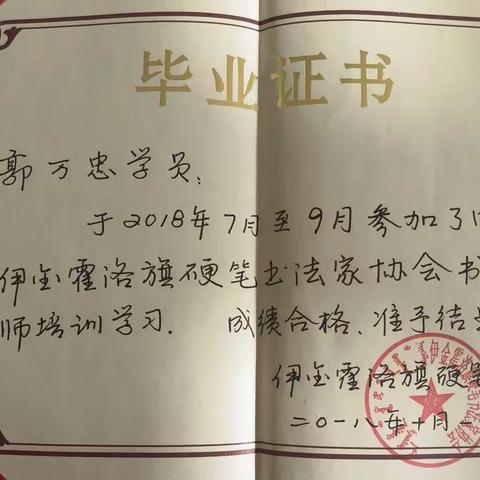 毕业证书
郭万忠学员：
于2018年7月至9月参加了
伊金霍洛旗硬笔书法家协会书
师培训学习. 成绩合格.准予结
伊金霍洛旗硬笔
二〇一八年十月一